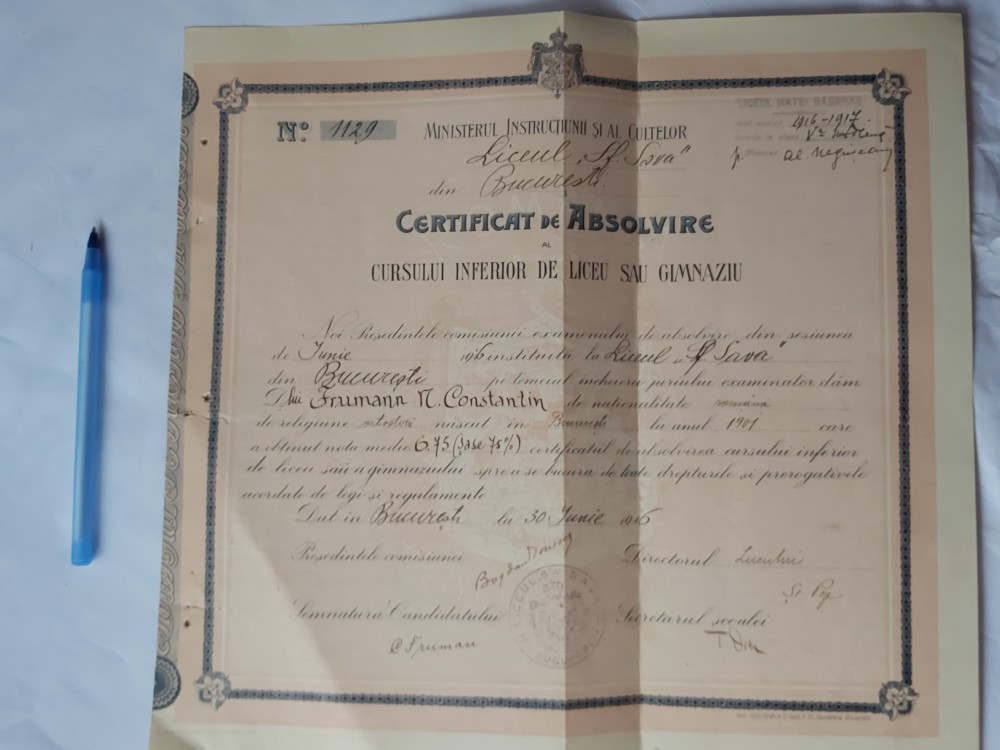 LICEUL MATEI BASARAB
1916-1917
Nº 1129
MINISTERUL INSTRUCȚIUNII ȘI AL CULTELOR
Liceul „Sf. Sava”
din București
CERTIFICAT DE ABSOLVIRE
AL
CURSULUI INFERIOR DE LICEU SAU GIMNAZIU
Noi Președintele comisiunii examenului de absolvire din sesiunea
de Iunie 1916 instituită la Liceul „Sf Sava”
din București pe temeiul încheierii juriului examinator dăm
D lui Frumann N. Constantin de naționalitate română
de religiune ortodoxă născut în București la anul 1901 care
a obținut nota medie 6.75 (șase 75%) certificatul de absolvirea cursului inferior
de liceu sau a gimnaziului spre a se bucura de toate drepturile și prerogativele
acordate de legi și regulamente
Dat în București la 30 Iunie 1916
Președintele comisiunei Directorul Liceului
Bogdan
Șt Pop
Semnatura Candidatului Secretarul școalei
C Fruman
LICEUL SAVA BUCUREȘTI